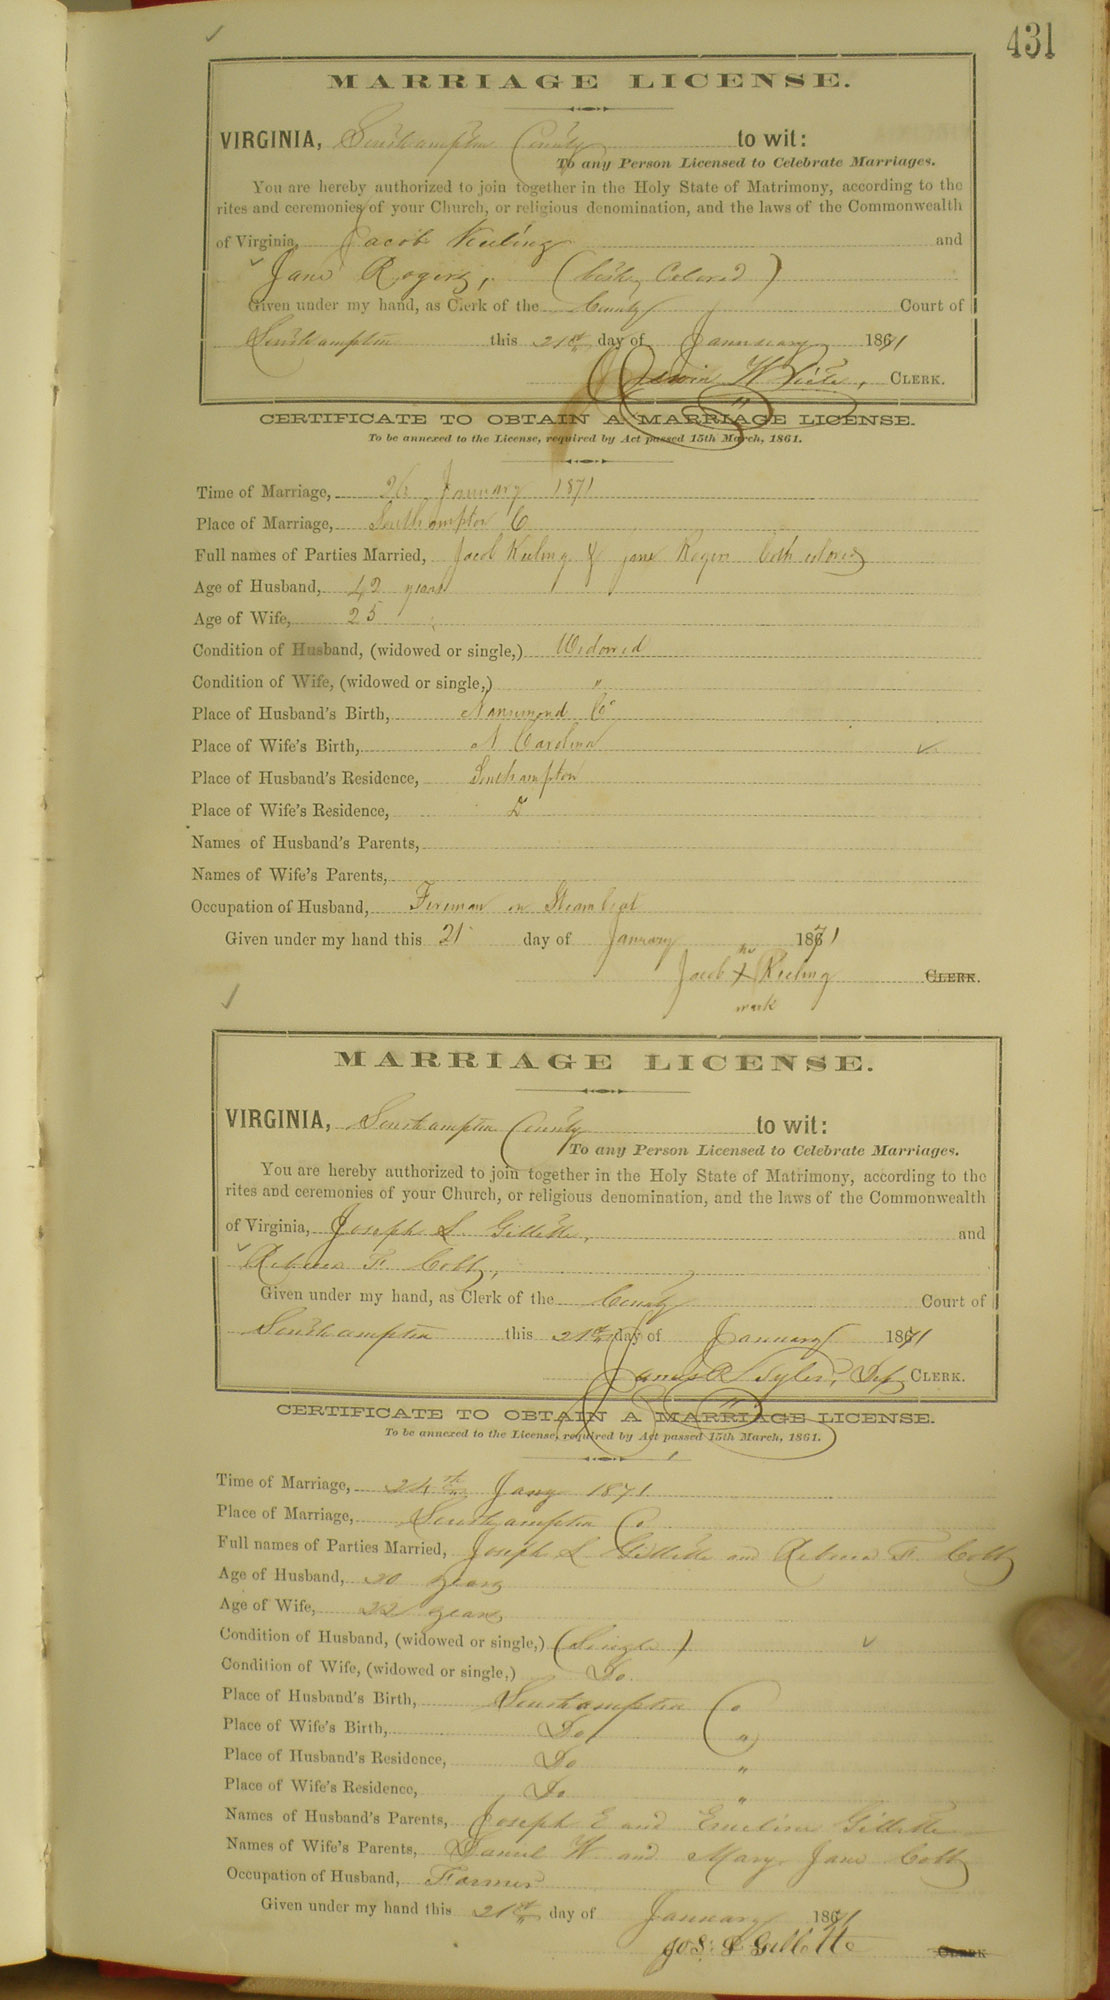 431
MARRIAGE LICENSE.
VIRGINIA, Southampton County to wit:
To any Person Licensed to Celebrate Marriages.
You are hereby authorized to join together in the Holy State of Matrimony, according to the
rites and ceremonies of your Church, or religious denomination, and the laws of the Commonwealth
of Virginia, Jacob Keeling and
Jane Rogers, (both Colored)
Given under my hand, as Clerk of the County Court of
Southampton this 21st day of January 1871
White, CLERK.
CERTIFICATE TO OBTAIN A MARRIAGE LICENSE.
To be annexed to the License, required by Act passed 15th March, 1861.
Time of Marriage, 26 January 1871
Place of Marriage, Southampton C
Full names of Parties Married, Jacob Keeling & Jane Rogers both colored
Age of Husband, 42 years
Age of Wife, 25
Condition of Husband, (widowed or single,) Widowed
Condition of Wife, (widowed or single,) "
Place of Husband's Birth, Nansemond Co
Place of Wife's Birth, N Carolina
Place of Husband's Residence, Southampton
Place of Wife's Residence, D
Names of Husband's Parents,
Names of Wife's Parents,
Occupation of Husband, Fireman on Steamboat
Given under my hand this 21 day of January 1871
his
Jacob X Keeling CLERK.
mark
MARRIAGE LICENSE.
VIRGINIA, Southampton County to wit:
To any Person Licensed to Celebrate Marriages.
You are hereby authorized to join together in the Holy State of Matrimony, according to the
rites and ceremonies of your Church, or religious denomination, and the laws of the Commonwealth
of Virginia, Joseph L. Gillette, and
Rebecca F. Cobb,
Given under my hand, as Clerk of the County Court of
Southampton this 21st day of January 1871
James R Tyler, Dep CLERK.
CERTIFICATE TO OBTAIN A MARRIAGE LICENSE.
To be annexed to the License, required by Act passed 15th March, 1861.
Time of Marriage, 24th Jany 1871
Place of Marriage, Southampton Co
Full names of Parties Married, Joseph L. Gillette and Rebecca F. Cobb
Age of Husband, 20 years
Age of Wife, 22 years
Condition of Husband, (widowed or single,) (Single)
Condition of Wife, (widowed or single,) Do.
Place of Husband's Birth, Southampton Co
Place of Wife's Birth, Do "
Place of Husband's Residence, Do "
Place of Wife's Residence, Do "
Names of Husband's Parents, Joseph E and Emeline Gillette
Names of Wife's Parents, Daniel W. and Mary Jane Cobb
Occupation of Husband, Farmer
Given under my hand this 21st day of January 1871
Jos. L Gillette CLERK